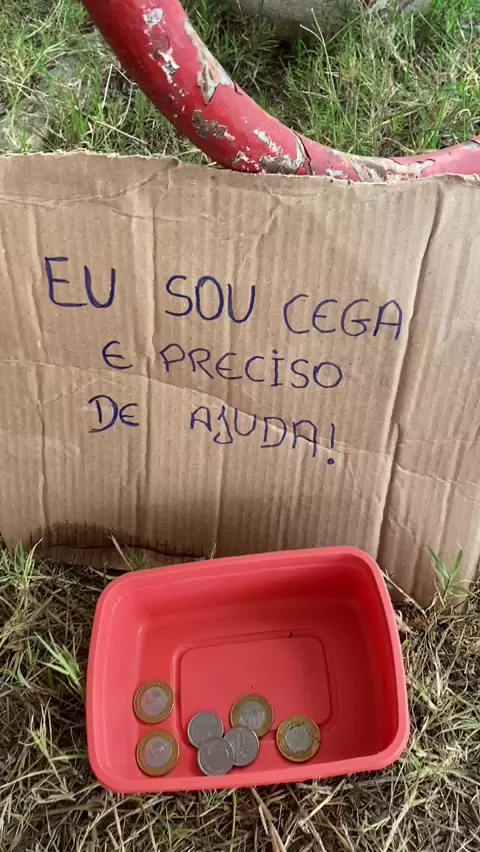 EU SOU CEGA
E PRECISO
DE AJUDA!